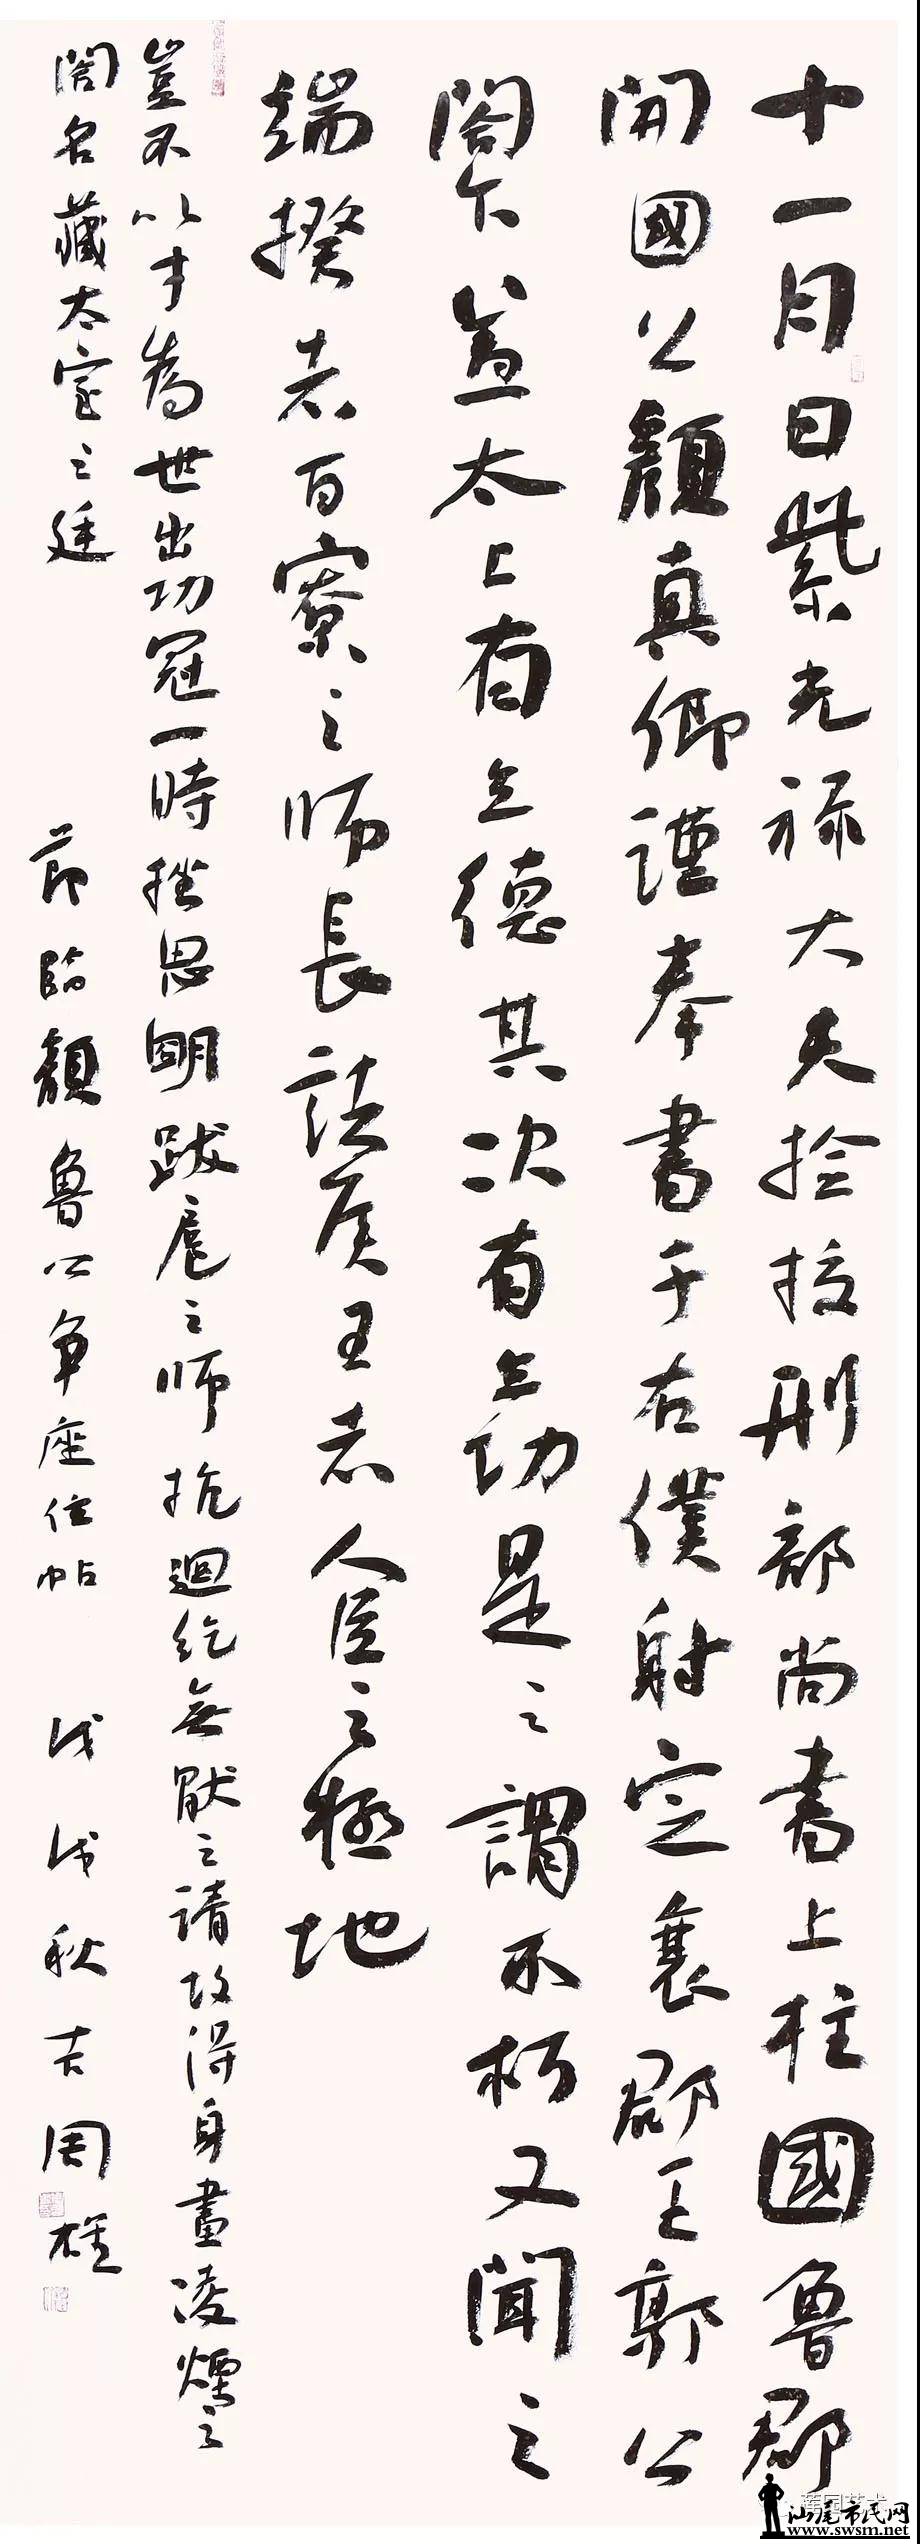 十一月日紫光禄大夫捡挍刑部尚書上柱國魯郡
開國公顔真卿謹奉書于右僕射定襄郡王郭公
閤下盖太上有立德其次有立功是之謂不朽又聞之
端揆者百寮之師長諸侯王者人臣之極地
豈不以才為世出功冠一時挫思明跋扈之師抗迴紇無猒之請故得身畫凌煙之
閣名藏太室之廷
節臨顔魯公争座位帖
戊戌秋吉周雄
莲园艺术
汕尾市民网
www.swsm.net